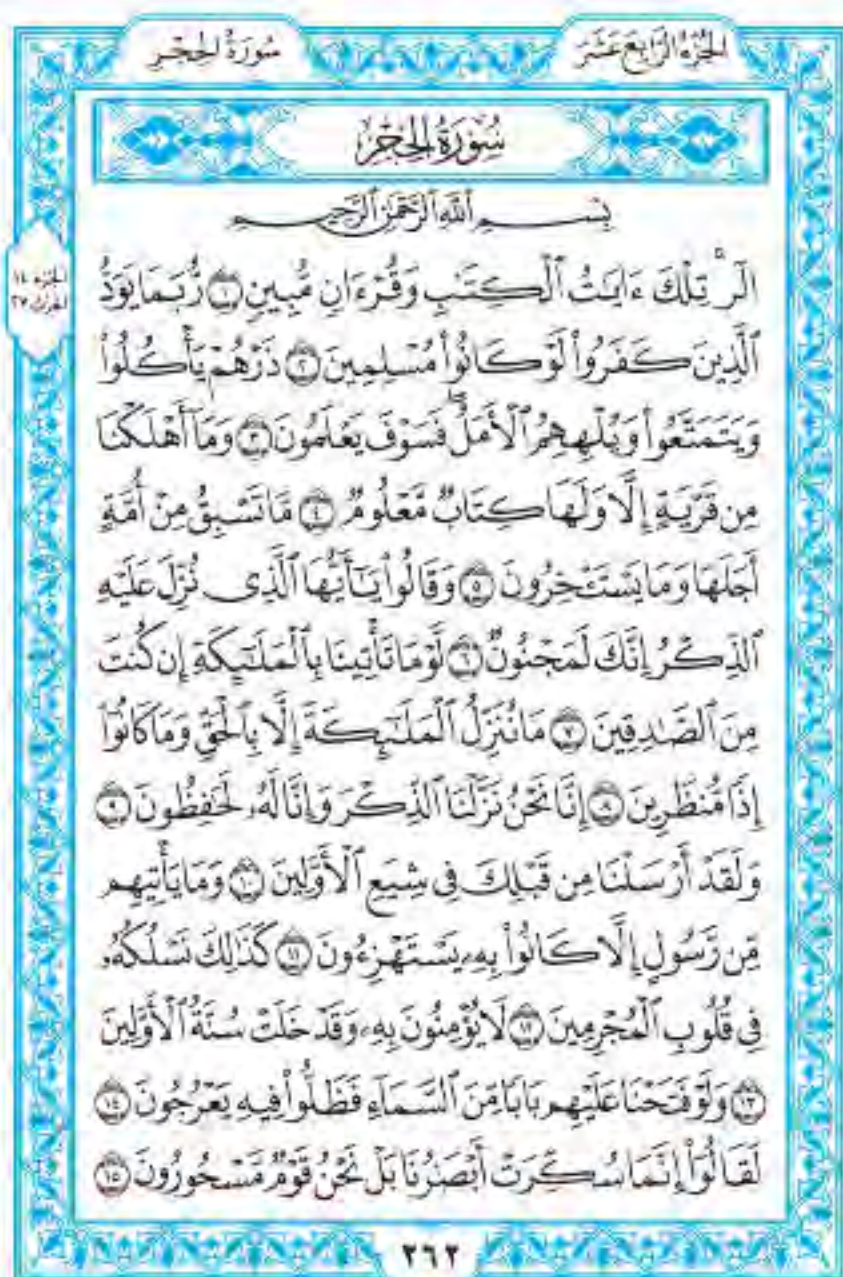 الجزء الرابع عشر
سورة الحجر
سُورَةُ الحِجْرِ
بِسْمِ ٱللَّهِ ٱلرَّحْمَٰنِ ٱلرَّحِيمِ
الجزء ١٤
الحزب ٢٧
الٓرۚ تِلْكَ ءَايَٰتُ ٱلْكِتَٰبِ وَقُرْءَانٍ مُّبِينٍ ١ رُّبَمَا يَوَدُّ
ٱلَّذِينَ كَفَرُوا۟ لَوْ كَانُوا۟ مُسْلِمِينَ ٢ ذَرْهُمْ يَأْكُلُوا۟
وَيَتَمَتَّعُوا۟ وَيُلْهِهِمُ ٱلْأَمَلُۖ فَسَوْفَ يَعْلَمُونَ ٣ وَمَآ أَهْلَكْنَا
مِن قَرْيَةٍ إِلَّا وَلَهَا كِتَابٌ مَّعْلُومٌ ٤ مَّا تَسْبِقُ مِنْ أُمَّةٍ
أَجَلَهَا وَمَا يَسْتَـْٔخِرُونَ ٥ وَقَالُوا۟ يَٰٓأَيُّهَا ٱلَّذِى نُزِّلَ عَلَيْهِ
ٱلذِّكْرُ إِنَّكَ لَمَجْنُونٌ ٦ لَّوْ مَا تَأْتِينَا بِٱلْمَلَٰٓئِكَةِ إِن كُنتَ
مِنَ ٱلصَّٰدِقِينَ ٧ مَا نُنَزِّلُ ٱلْمَلَٰٓئِكَةَ إِلَّا بِٱلْحَقِّ وَمَا كَانُوٓا۟
إِذًا مُّنظَرِينَ ٨ إِنَّا نَحْنُ نَزَّلْنَا ٱلذِّكْرَ وَإِنَّا لَهُۥ لَحَٰفِظُونَ ٩
وَلَقَدْ أَرْسَلْنَا مِن قَبْلِكَ فِى شِيَعِ ٱلْأَوَّلِينَ ١٠ وَمَا يَأْتِيهِم
مِّن رَّسُولٍ إِلَّا كَانُوا۟ بِهِۦ يَسْتَهْزِءُونَ ١١ كَذَٰلِكَ نَسْلُكُهُۥ
فِى قُلُوبِ ٱلْمُجْرِمِينَ ١٢ لَا يُؤْمِنُونَ بِهِۦ وَقَدْ خَلَتْ سُنَّةُ ٱلْأَوَّلِينَ
١٣ وَلَوْ فَتَحْنَا عَلَيْهِم بَابًا مِّنَ ٱلسَّمَآءِ فَظَلُّوا۟ فِيهِ يَعْرُجُونَ ١٤
لَقَالُوٓا۟ إِنَّمَا سُكِّرَتْ أَبْصَٰرُنَا بَلْ نَحْنُ قَوْمٌ مَّسْحُورُونَ ١٥
٢٦٢